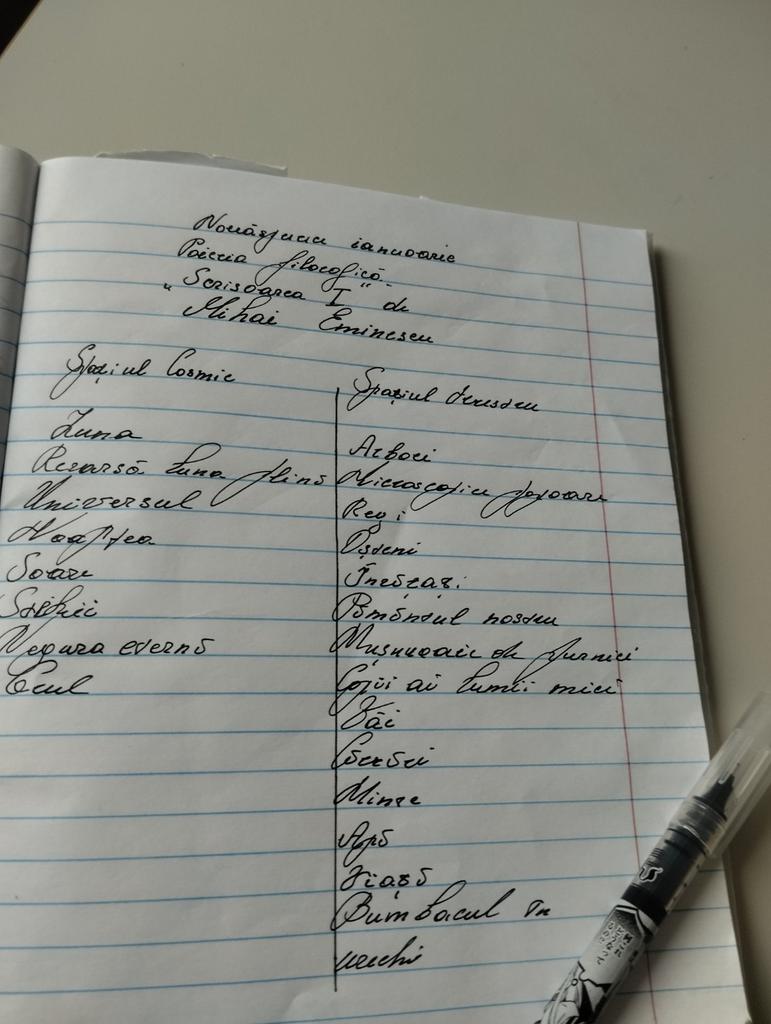 Nouăsprece ianuarie
Poezia filozofică
"Scrisoarea I" de
Mihai Eminescu
Spațiul Cosmic
Luna
Revarsă luna plină
Universul
Noaptea
Soare
Stihii
Negura eternă
Cerul
Spațiul terestru
Arbori
Microscopice popoare
Regi
Oșteni
Învățați
Pământul nostru
Mușuroaie de furnici
Copii ai lumii mici
Văi
Cărări
Minte
Apă
Viață
Bumbacul în
urechi